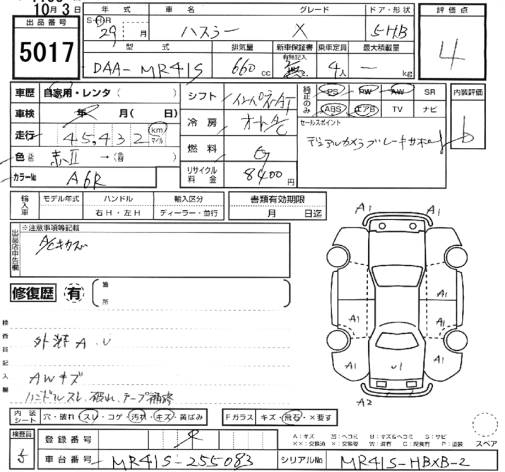 10月3日
出品番号
5017
年式 車名 グレード ドア・形状
S・H・R 29 月 ハスラー X 5HB
型式 排気量 新車保証書 乗車定員 最大積載量
有効記入
DAA-MR41S 660cc 無 4人 - kg
評価点
4
車歴 自家用・レンタ( )
車検 年 月( 日)
走行 45,432 km マイル
色 赤II →( )
カラーNo A6R
シフト インパネAT
冷房 オートA/C
燃料 G
リサイクル料金 8400円
純正のみ PS PW AW SR
ABS エアB TV ナビ
セールスポイント
デュアルカメラブレーキサポート
内装評価
b
輸入車 モデル年式 ハンドル 輸入区分 書類有効期限
年 右H・左H ディーラー・並行 月 日迄
出品店申告欄
※注意事項等記載
A/Cキカズ
修復歴 有 箇所
検査員記入欄
外装A.U
AWキズ
ハンドルスレ、破れ、テープ補修
A1
A1 A1
A1 A1
A1 A1
U1
A2
内装シート 穴・破れ スレ・コゲ 汚れ・キズ 黄ばみ Fガラス キズ・飛石・×要す
検査員 5
登録番号
車台番号 MR41S-255083 シリアルNo MR41S-HBXB-2
スペア